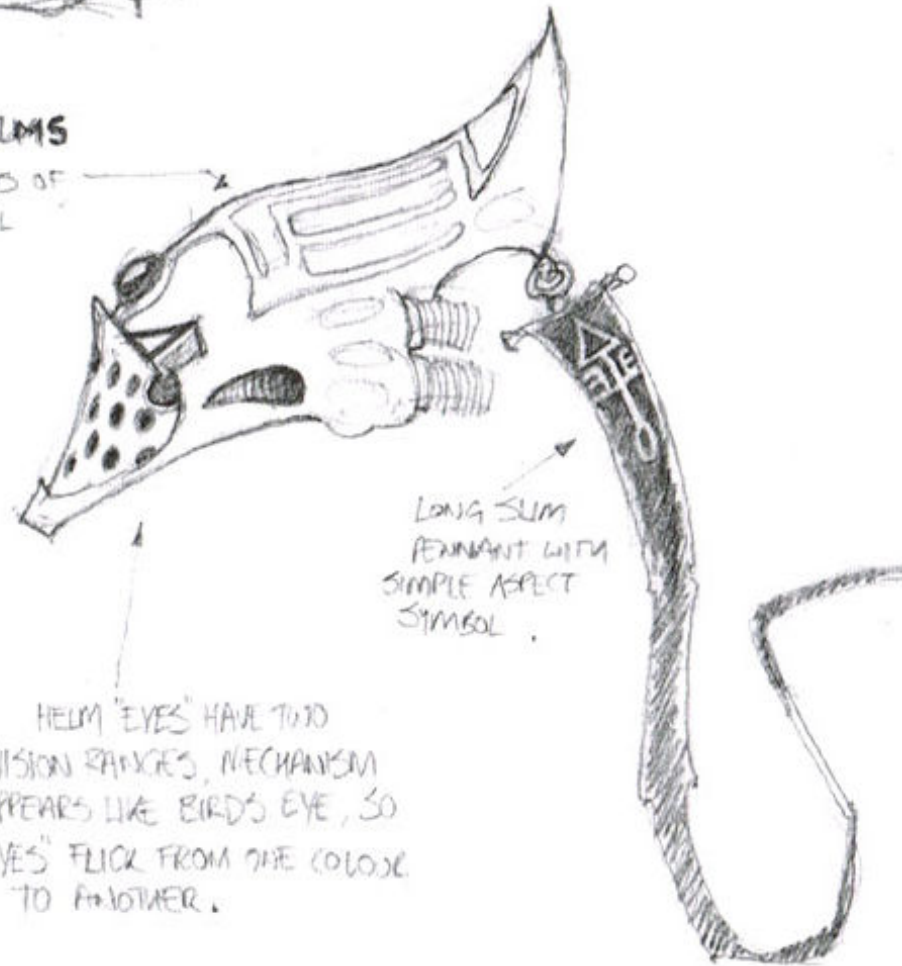 LMS
S OF
L
LONG SLIM
PENNANT WITH
SIMPLE ASPECT
SYMBOL.
HELM "EYES" HAVE TWO
VISION RANGES, MECHANISM
PPEARS LIKE BIRDS EYE, SO
YES" FLICK FROM ONE COLOUR
TO ANOTHER.